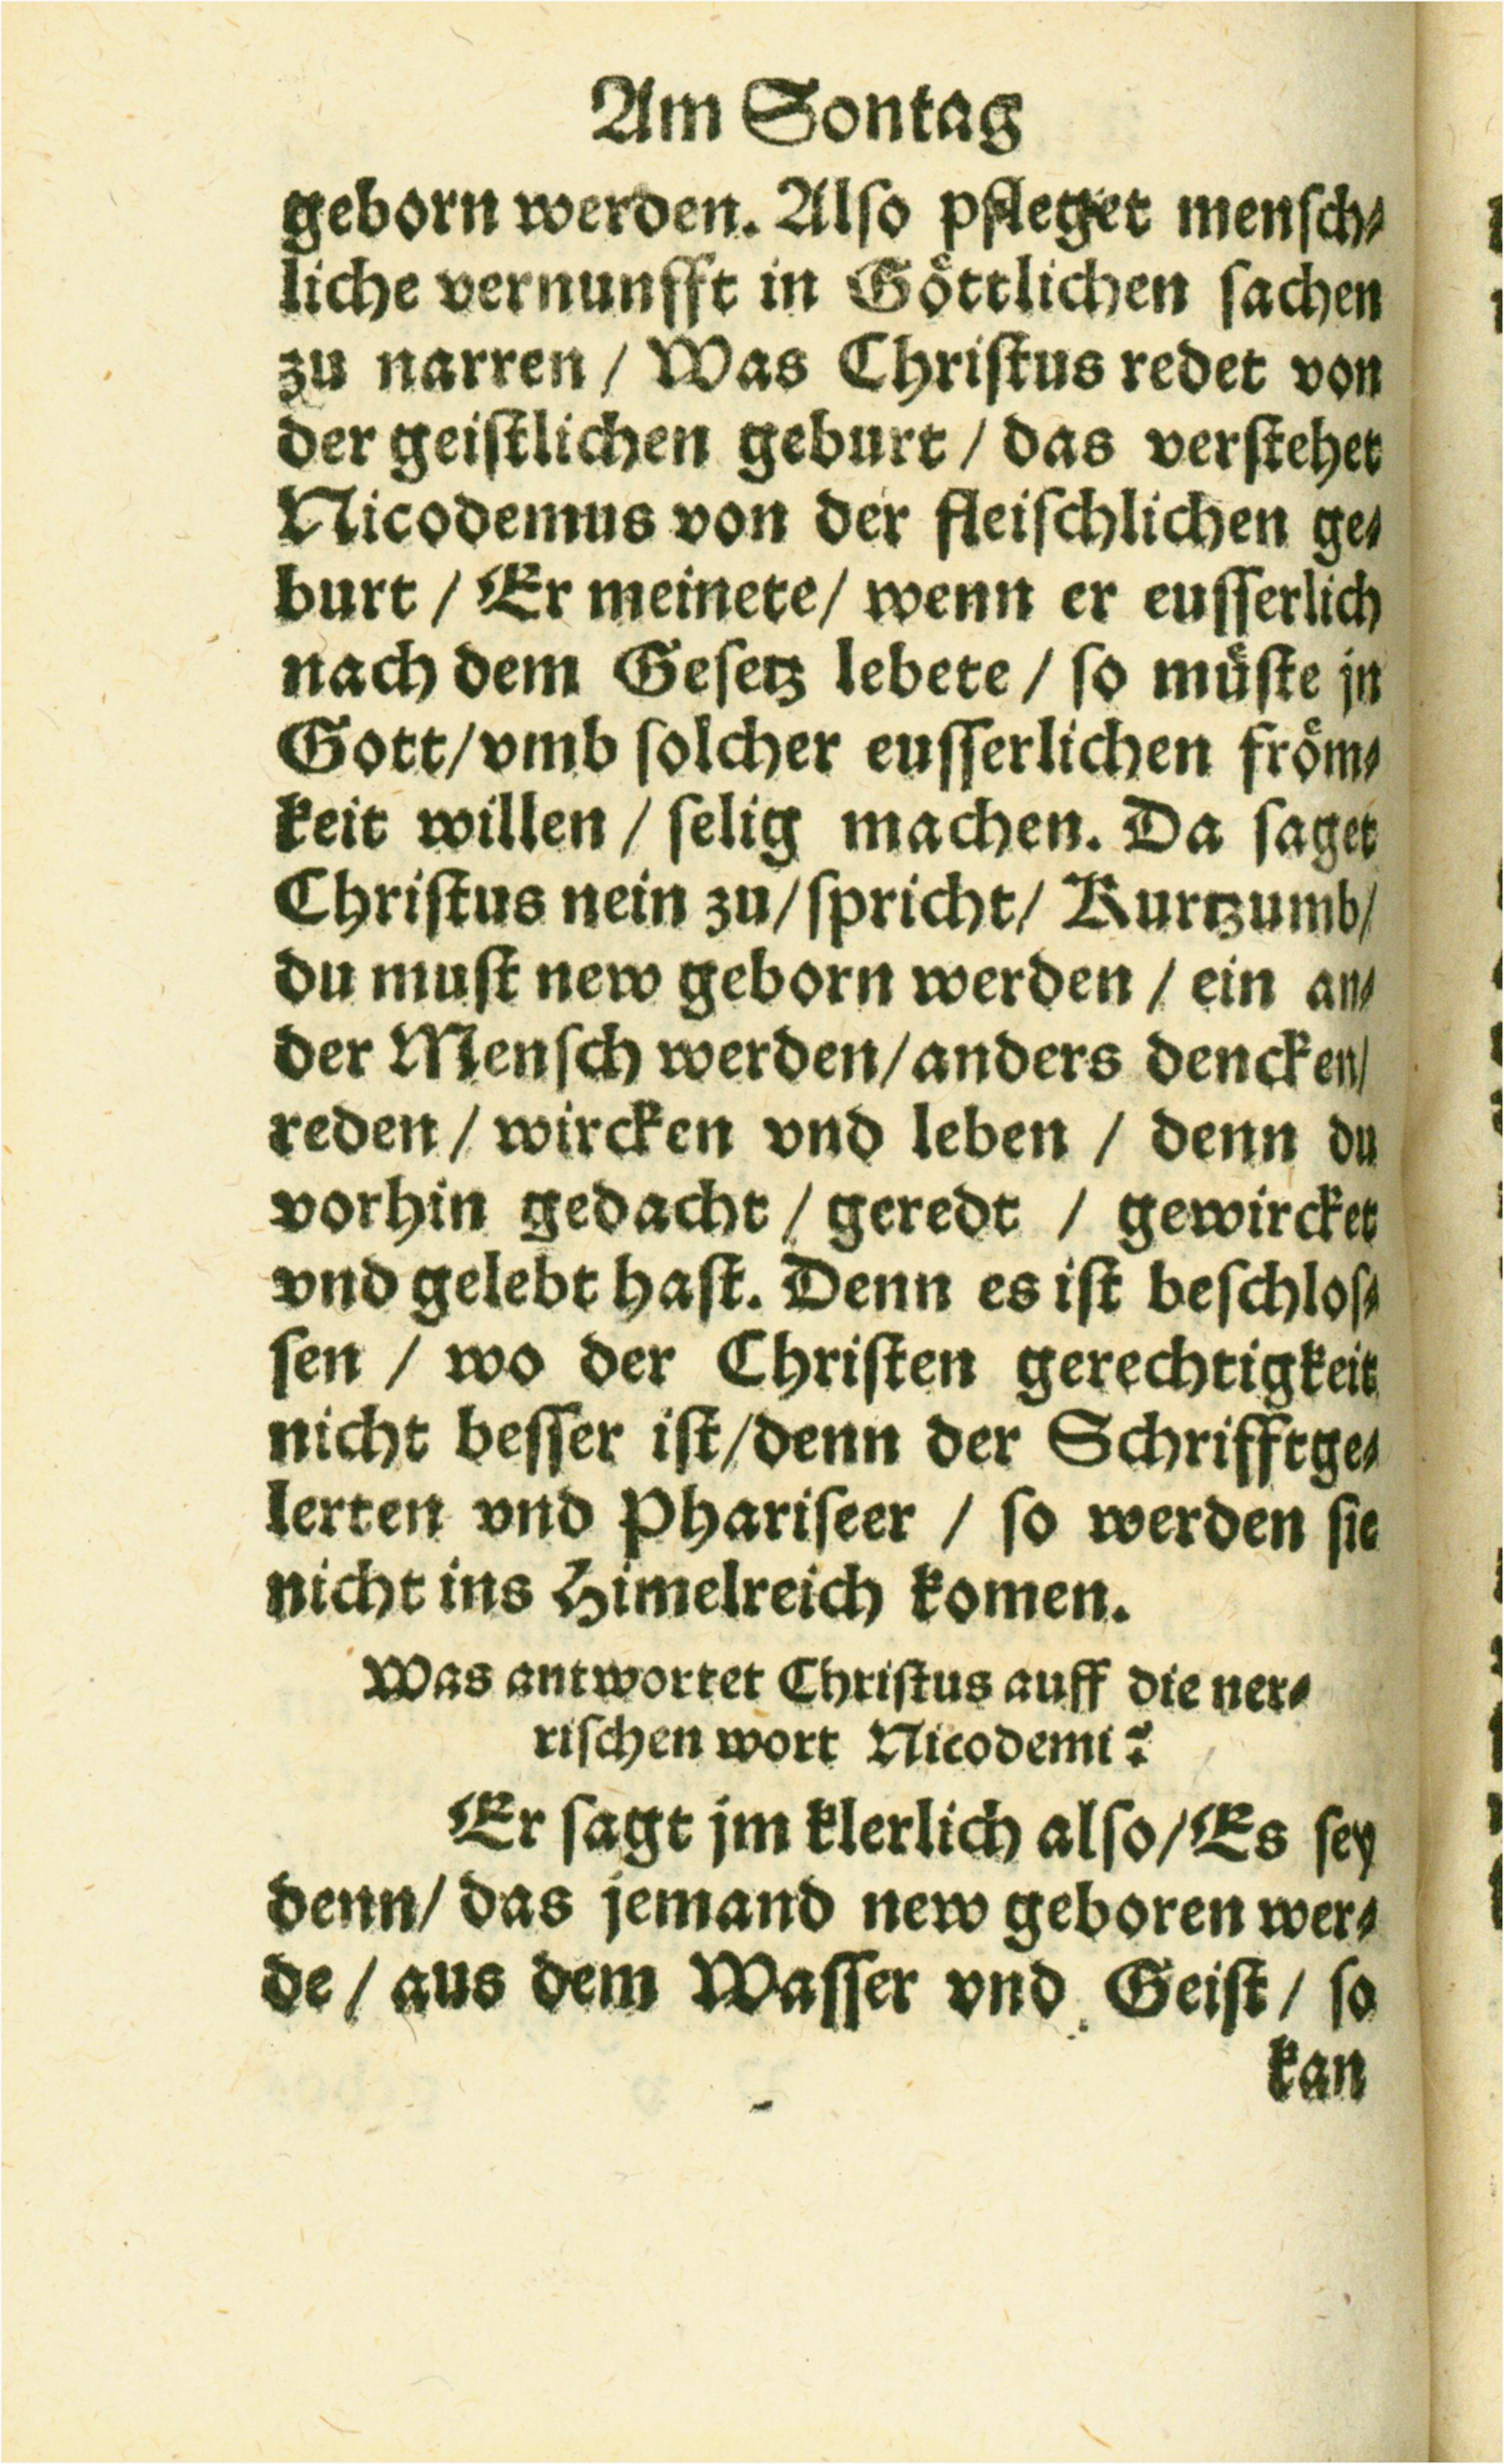 Am Sontag
geborn werden. Also pfleget mensch⸗
liche vernunfft in Goͤttlichen sachen
zu narren / Was Christus redet von
der geistlichen geburt / das verstehet
Nicodemus von der fleischlichen ge⸗
burt / Er meinete / wenn er eusserlich
nach dem Gesetz lebete / so muͤste jn
Gott / vmb solcher eusserlichen froͤm⸗
keit willen / selig machen. Da saget
Christus nein zu / spricht / Kurtzumb /
du must new geborn werden / ein an⸗
der Mensch werden / anders dencken /
reden / wircken vnd leben / denn du
vorhin gedacht / geredt / gewircket
vnd gelebt hast. Denn es ist beschlos⸗
sen / wo der Christen gerechtigkeit
nicht besser ist / denn der Schrifftge⸗
lerten vnd Phariseer / so werden sie
nicht ins Himelreich komen.
Was antwortet Christus auff die ner⸗
rischen wort Nicodemi?
Er sagt jm klerlich also / Es sey
denn / das jemand new geboren wer⸗
de / aus dem Wasser vnd Geist / so
kan